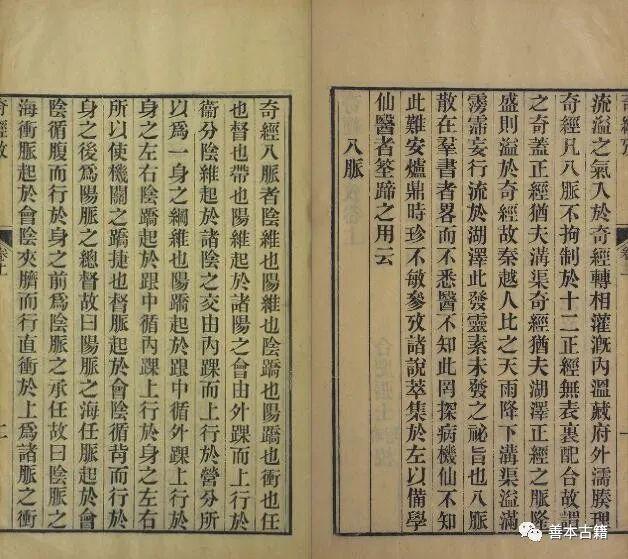 流溢之氣入於奇經轉相灌溉內溫藏府外濡腠理
奇經凡八脈不拘制於十二正經無表裏配合故謂
之奇蓋正經猶夫溝渠奇經猶夫湖澤正經之脈隆
盛則溢於奇經故秦越人比之天雨降下溝渠溢滿
霶霈妄行流於湖澤此發靈素未發之祕旨也八脈
散在羣書者畧而不悉醫不知此罔探病機仙不知
此難安爐鼎時珍不敏參攷諸說萃集於左以備學
仙醫者筌蹄之用云
八脈
奇經八脈者陰維也陽維也陰蹻也陽蹻也衝也任
也督也帶也陽維起於諸陽之會由外踝而上行於
衞分陰維起於諸陰之交由內踝而上行於營分所
以爲一身之綱維也陽蹻起於跟中循外踝上行於
身之左右陰蹻起於跟中循內踝上行於身之左右
所以使機關之蹻捷也督脈起於會陰循背而行於
身之後爲陽脈之總督故曰陽脈之海任脈起於會
陰循腹而行於身之前爲陰脈之承任故曰陰脈之
海衝脈起於會陰夾臍而行直衝於上爲諸脈之衝
奇經攷
二
善本古籍